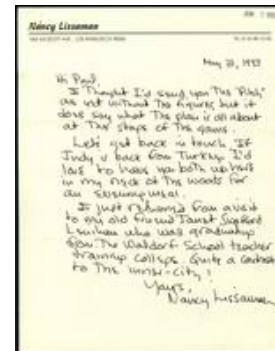 JUN 1
Nancy Lissaman
May 23, 1993
Hi Paul,
I Thought I'd send you The "Pitch"
as yet without The figures but it
does say what The plan is all about
at The steps of The game.
Let's get back in touch. If
Indy is back from Turkey I'd
love to have you both up here
in my neck of The woods for
an
I just returned from a visit
to my old friend Janet
who was graduating
from The Waldorf School teacher
training college. Quite a contrast
to The inner-city!
Yours,
Nancy Lissaman